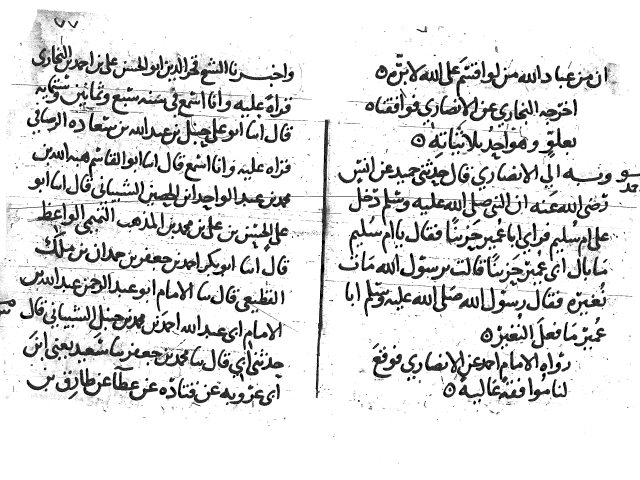 ان من عباد الله من لو اقسم على الله لابره
اخرجه البخاري عن الانصاري فوافقناه
بعلو وهو احد ثلاثياته
وبه الى الانصاري قال حدثني حميد عن انس
رضي الله عنه ان النبي صلى الله عليه وسلم دخل
على ام سليم فراى ابا عمير حزينا فقال يا ام سليم
ما بال ابي عمير حزينا قالت يرسول الله مات
نغيره فقال رسول الله صلى الله عليه وسلم ابا
عمير ما فعل النغير
رواه الامام احمد عن الانصاري فوقع
لنا موافقة عالية
٧٧
واخبرنا الشيخ فخر الدين ابو الحسن علي بن احمد بن البخاري
قراة عليه وانا اسمع في سنه سبع وثمانين وستمايه
قال انبا ابو علي حنبل بن عبد الله بن سعاده الرصافي
قراه عليه وانا اسمع قال انبا ابو القاسم هبه الله بن
محمد بن عبد الواحد ابن الحصين الشيباني قال انبا ابو
علي الحسن بن علي بن محمد بن المذهب التميمي الواعظ
قال انبا ابو بكر احمد بن جعفر بن حمدان بن ملك
القطيعي قال ثنا الامام ابو عبد الرحمن عبد الله بن
الامام ابي عبد الله احمد بن محمد بن حنبل الشيباني قال
حدثني ابي قال ثنا محمد بن جعفر ثنا سعيد يعني ابن
ابي عروبه عن قتاده عن عطا عن طارق بن